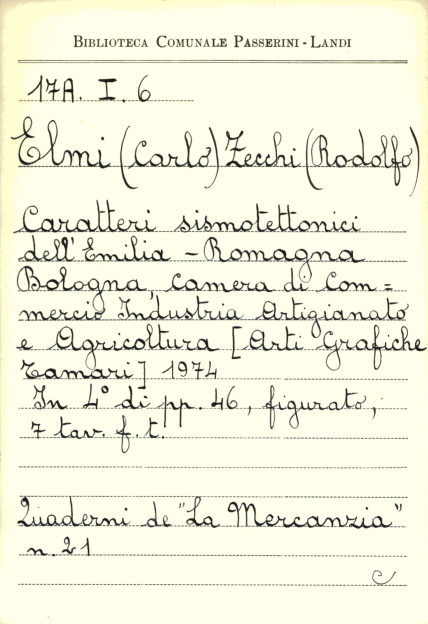 BIBLIOTECA COMUNALE PASSERINI - LANDI
17A. I. 6
Elmi (Carlo) Zecchi (Rodolfo)
Caratteri sismotettonici
dell'Emilia - Romagna
Bologna, camera di Com=
mercio Industria Artigianato
e Agricoltura [Arti Grafiche
Tamari] 1974
In 4° di pp. 46, figurato,
7 tav. f. t.
Quaderni de "La Mercanzia"
n. 21